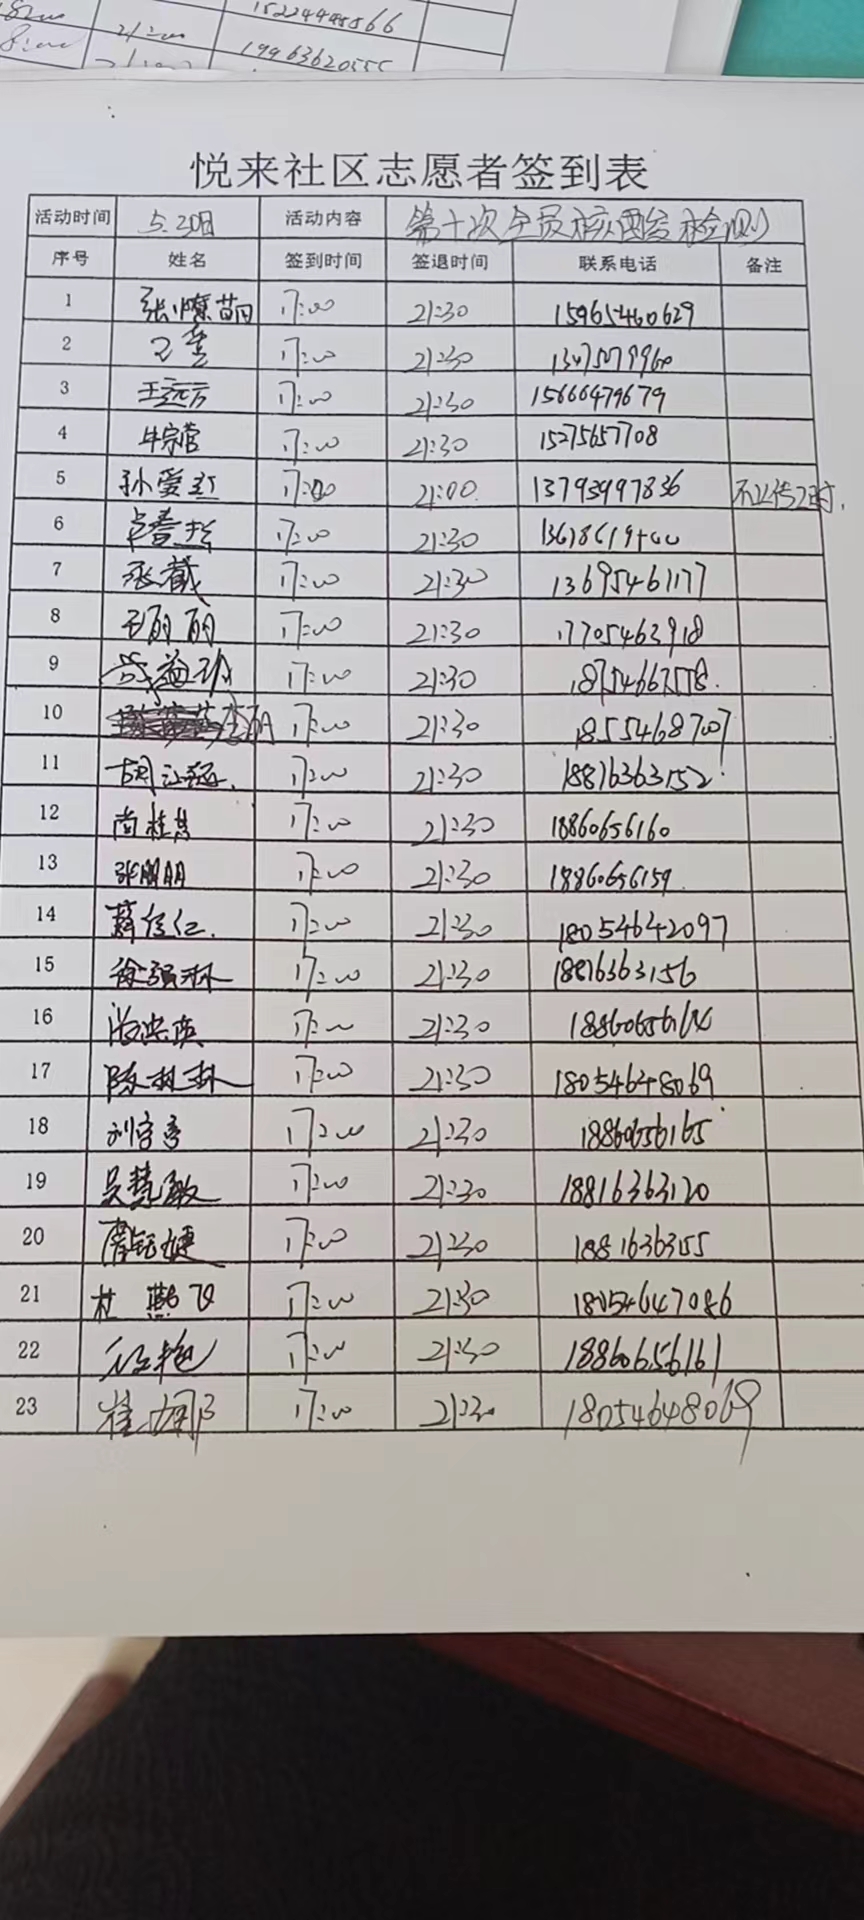 15224998866
21:00 19963620555
悦来社区志愿者签到表
活动时间 5.30日 活动内容 第十次全员核酸检测
序号 姓名 签到时间 签退时间 联系电话 备注
1 17:00 21:30 15965460629
2 17:00 21:30
3 王远方 17:00 21:30 15666479679
4 牛宗营 17:00 21:30 15275657708
5 孙爱红 17:00 21:00. 13793997836
6 17:00 21:30
7 张戴 17:00 21:30 13695461177
8 王丽丽 17:00 21:30 17705463918
9 17:00 21:30 18754667578.
10 17:00 21:30 18554687007
11 17:00 21:30 18816363152
12 尚桂芳 17:00 21:30 18860656160
13 张朋朋 17:00 21:30 18860656159.
14 薛佳仁. 17:00 21:30 18054642097
15 徐强林 17:00 21:30 18816363156
16 17:00 21:30
17 陈林林 17:00 21:30 18054648069
18 17:00 21:30 18860656165
19 吴慧敏 17:00 21:30 18816363120
20 17:00 21:30 18816363155
21 杜燕飞 17:00 21:30 18054647086
22 17:00 21:30 18860656161
23 崔娜 17:00 21:30 18054648069